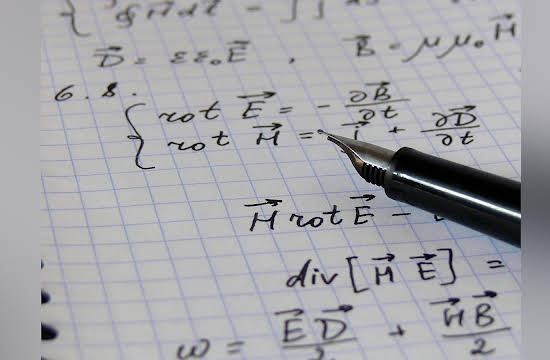 D⃗ = εε₀E⃗ , B⃗ = μμ₀H⃗
6.8.
{ rot E⃗ = - ∂B⃗/∂t
rot H⃗ = i⃗ + ∂D⃗/∂t
H⃗ rot E⃗ -
div [H⃗ E⃗] =
w = E⃗D⃗/2 + H⃗B⃗/2